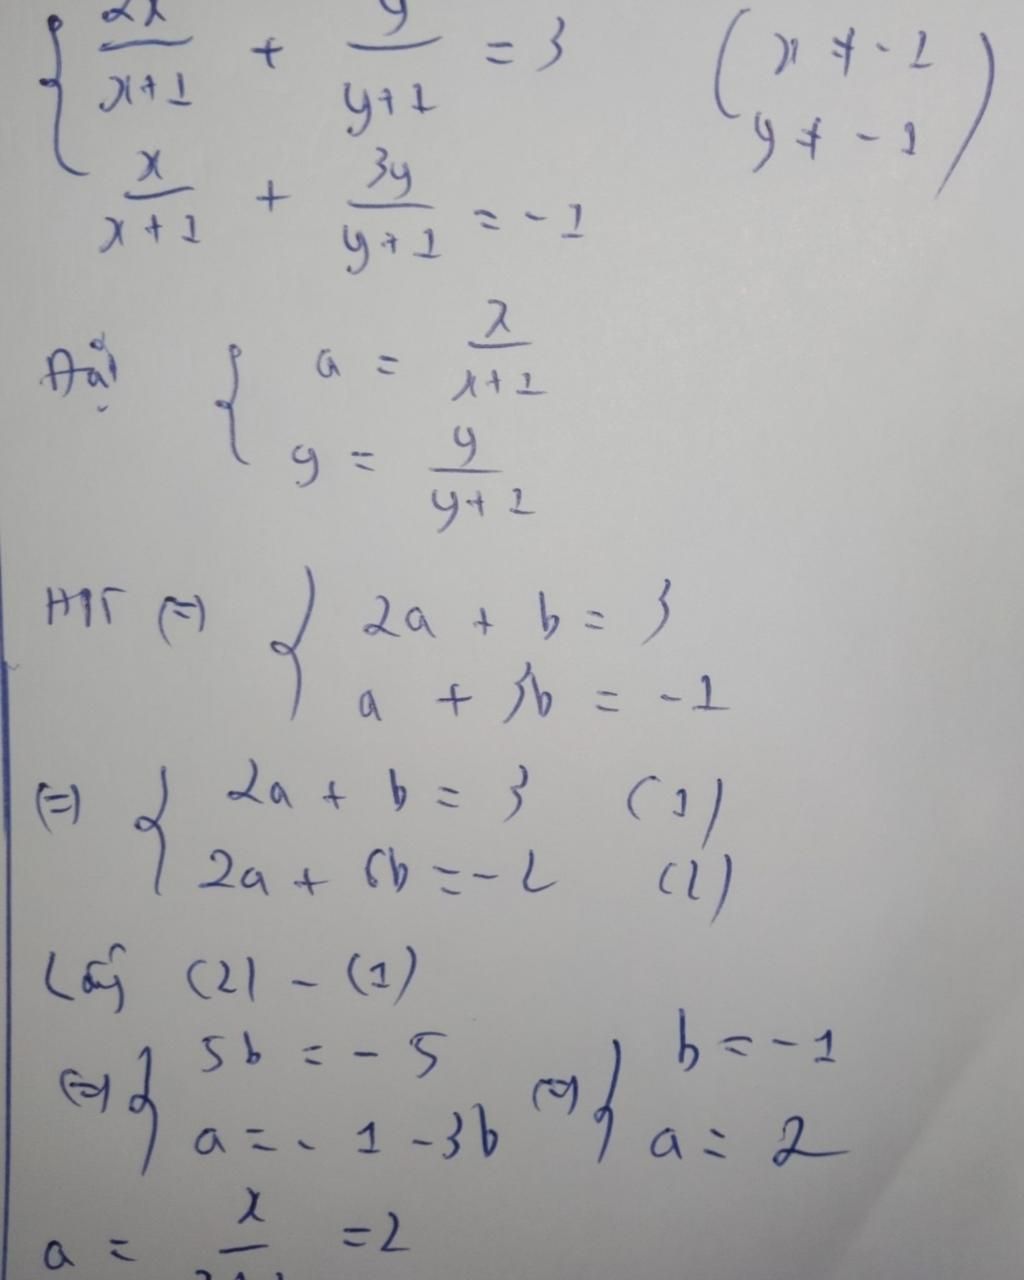 { 2x/(x+1) + y/(y+1) = 3 (x ≠ -1
y ≠ -1)
x/(x+1) + 3y/(y+1) = -1
Đặt { a = x/(x+1)
y = y/(y+1)
HPT (=) { 2a + b = 3
a + 3b = -1
(=) { 2a + b = 3 (1)
2a + 6b = -2 (2)
Lấy (2) - (1)
(=) { 5b = -5 (=) { b = -1
a = -1 - 3b a = 2
a = x/(x+1) = 2